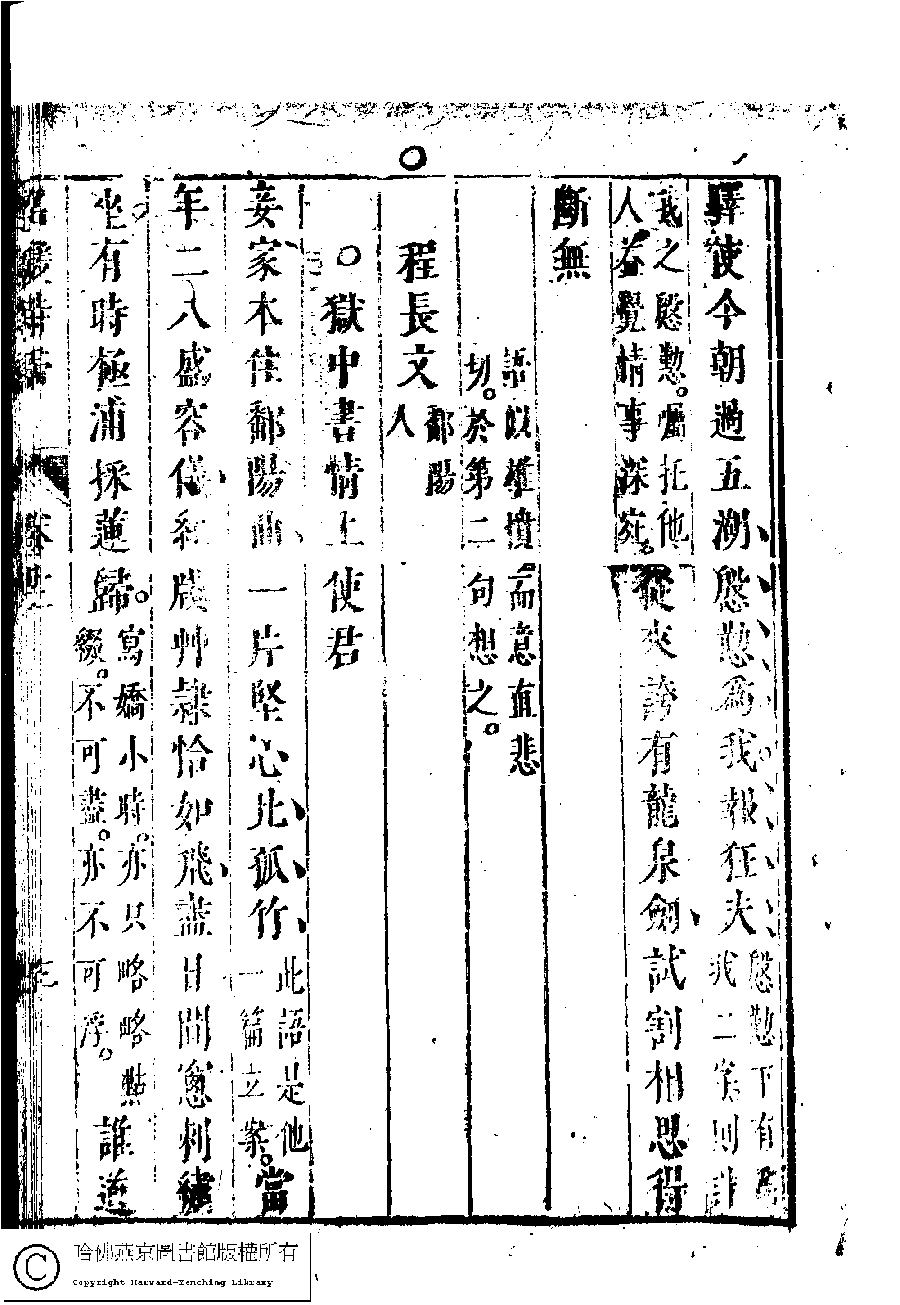 驛使今朝過五湖殷懃為我報狂夫殷懃下有為我二字則計
我之慇懃。囑托他人益覺情事深宛。從來誇有龍泉劍試割相思得
斷無
語似雄憤而意直悲切。於第二句想之。
程長文鄱陽人
○獄中書情上使君
妾家本住鄱陽曲一片堅心比孤竹此語是他一篇立案。當
年二八盛容儀紅牋艸隸恰如飛盡日閒窻刺繡
坐有時極浦採蓮歸。寫嬌小時。亦只略略點綴。不可盡。亦不可浮。誰道
名媛詩歸
哈佛燕京圖書館版權所有
Copyright Harvard-Yenching Library